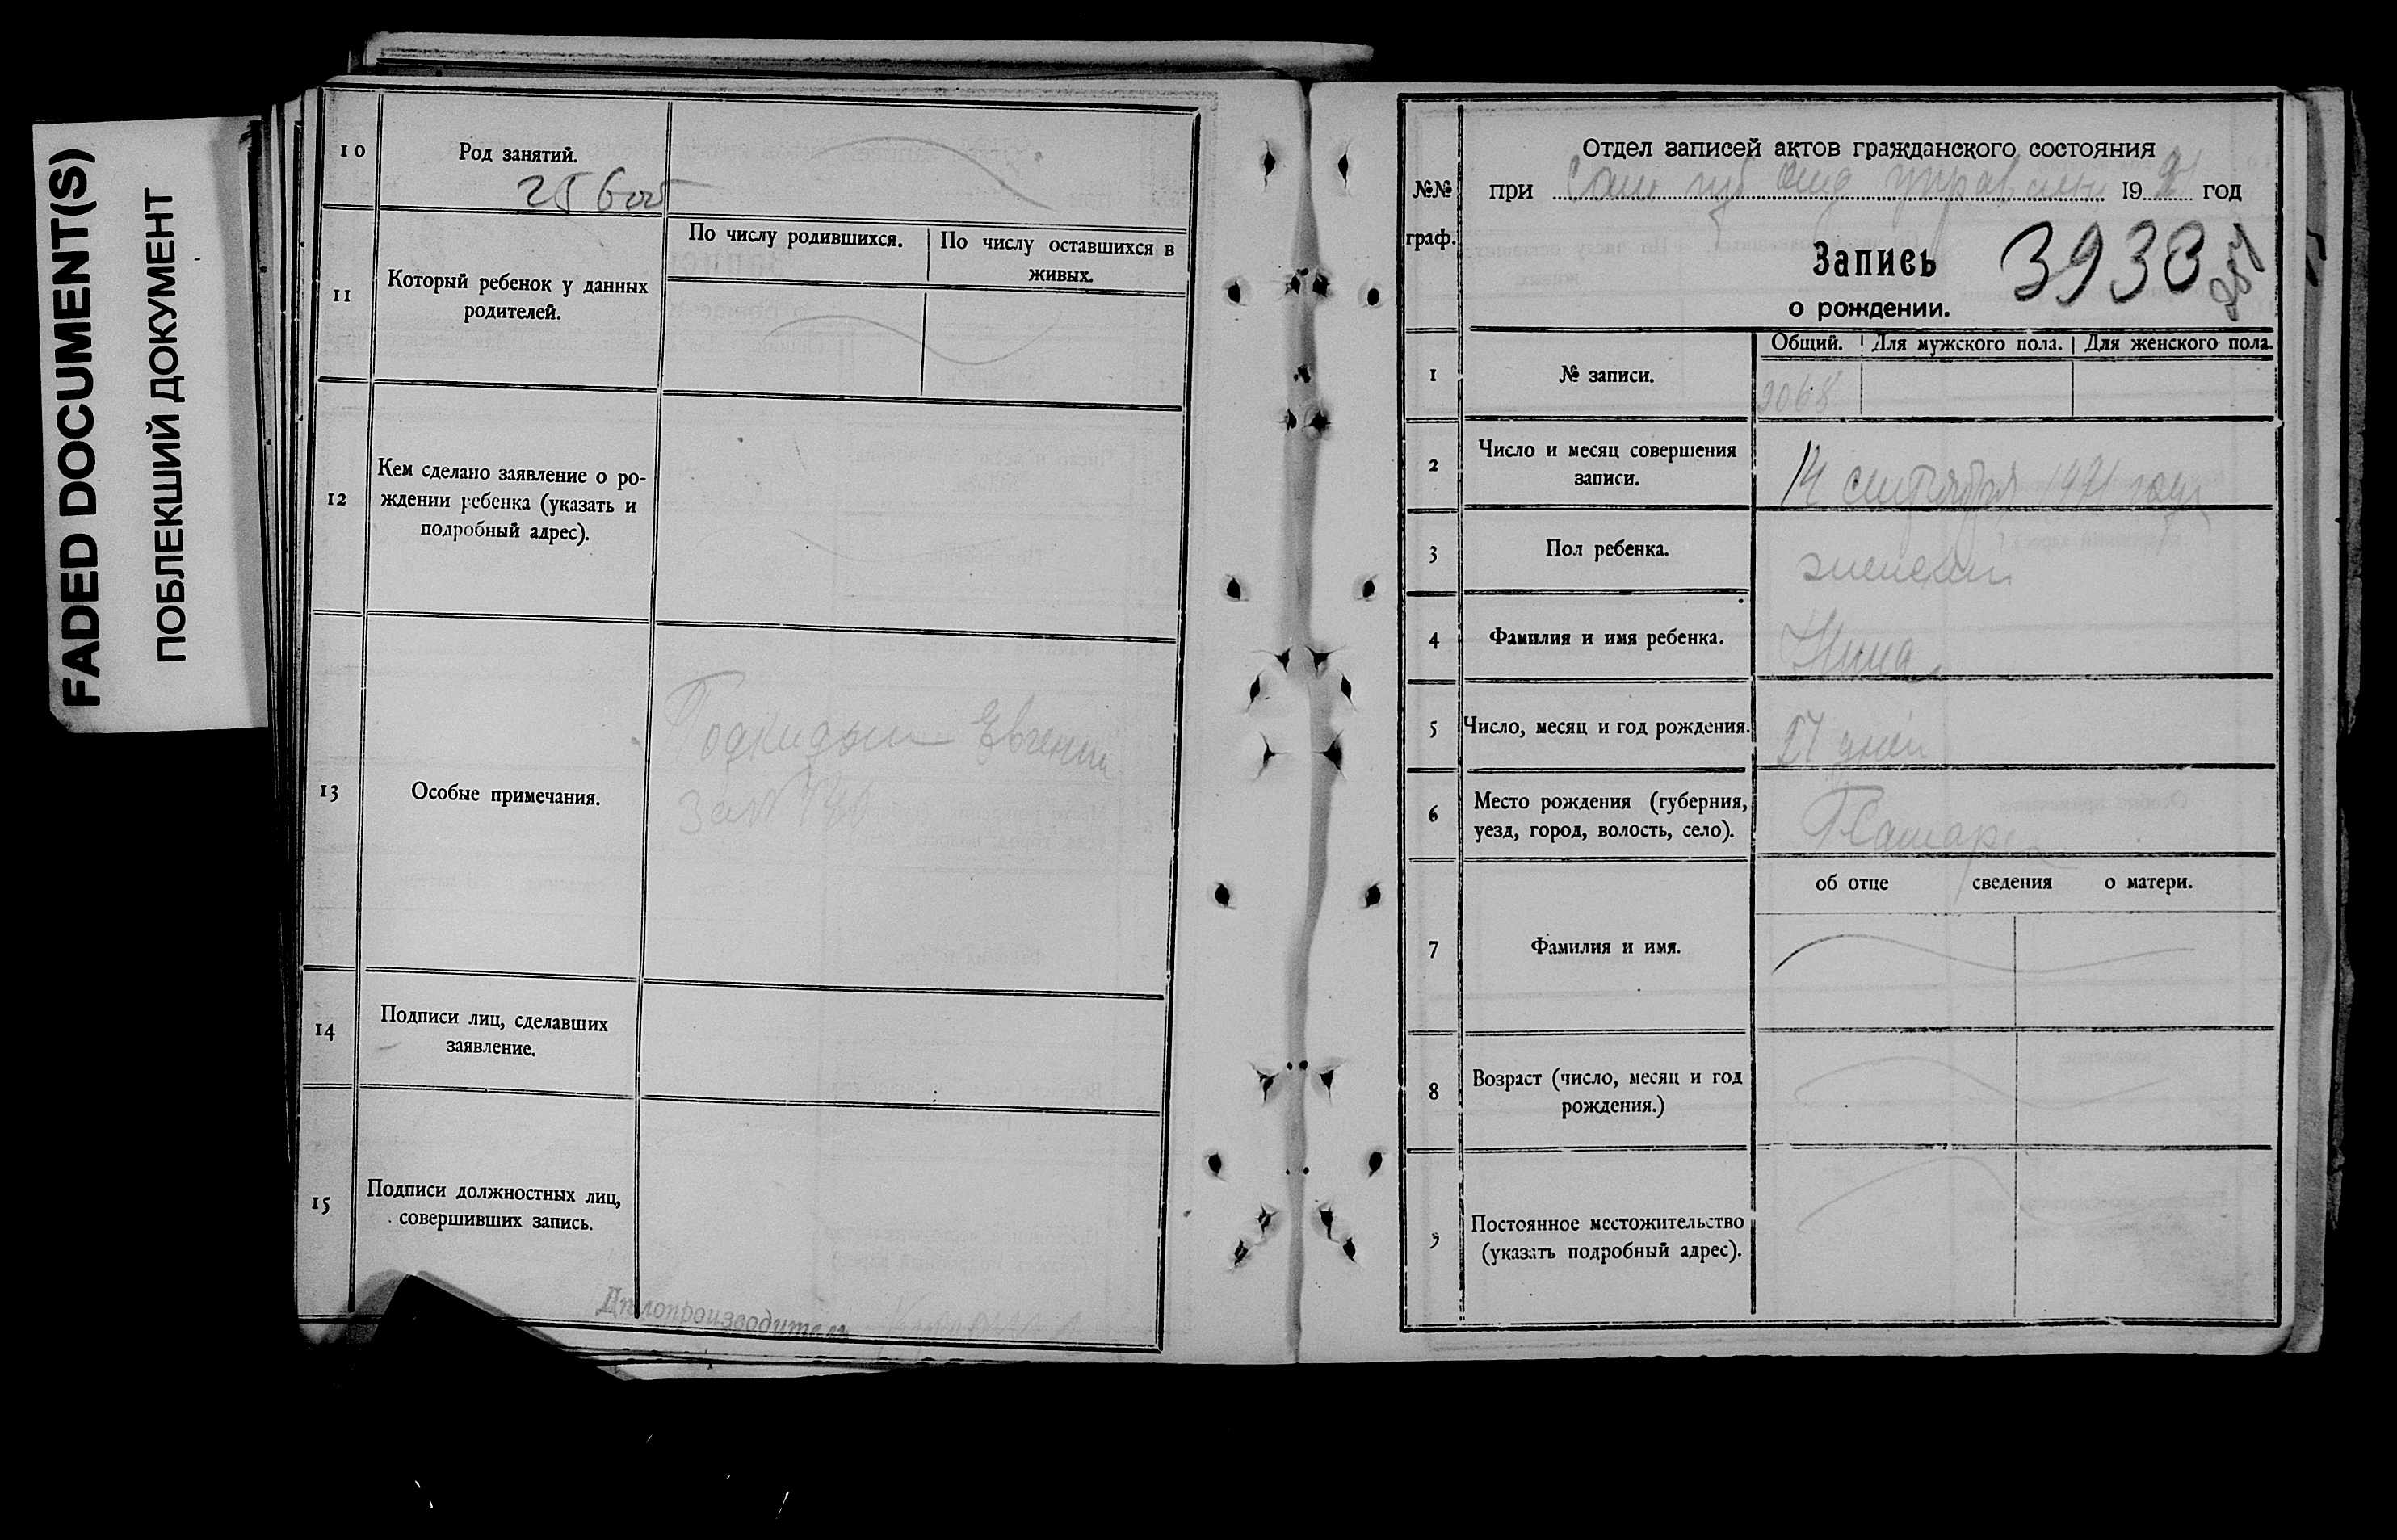 FADED DOCUMENT(S)
ПОБЛЕКШИЙ ДОКУМЕНТ
10
Род занятий.
25600
11
Который ребенок у данных
родителей.
По числу родившихся.
По числу оставшихся в
живых.
12
Кем сделано заявление о ро-
ждении ребенка (указать и
подробный адрес).
13
Особые примечания.
Подкидыш Евгении
14
Подписи лиц, сделавших
заявление.
15
Подписи должностных лиц,
совершивших запись.
Дѣлопроизводитель
№№
граф.
Отдел записей актов гражданского состояния
при Сам губ отд управлении 1921 год
Запись 3933
о рождении.
1
№ записи.
Общий. Для мужского пола. Для женского пола.
2068
2
Число и месяц совершения
записи.
14 сентября 1921 году
3
Пол ребенка.
женский
4
Фамилия и имя ребенка.
Нина
5
Число, месяц и год рождения.
27 дней
6
Место рождения (губерния,
уезд, город, волость, село).
Г Самара
об отце сведения о матери.
7
Фамилия и имя.
8
Возраст (число, месяц и год
рождения.)
9
Постоянное местожительство
(указать подробный адрес).